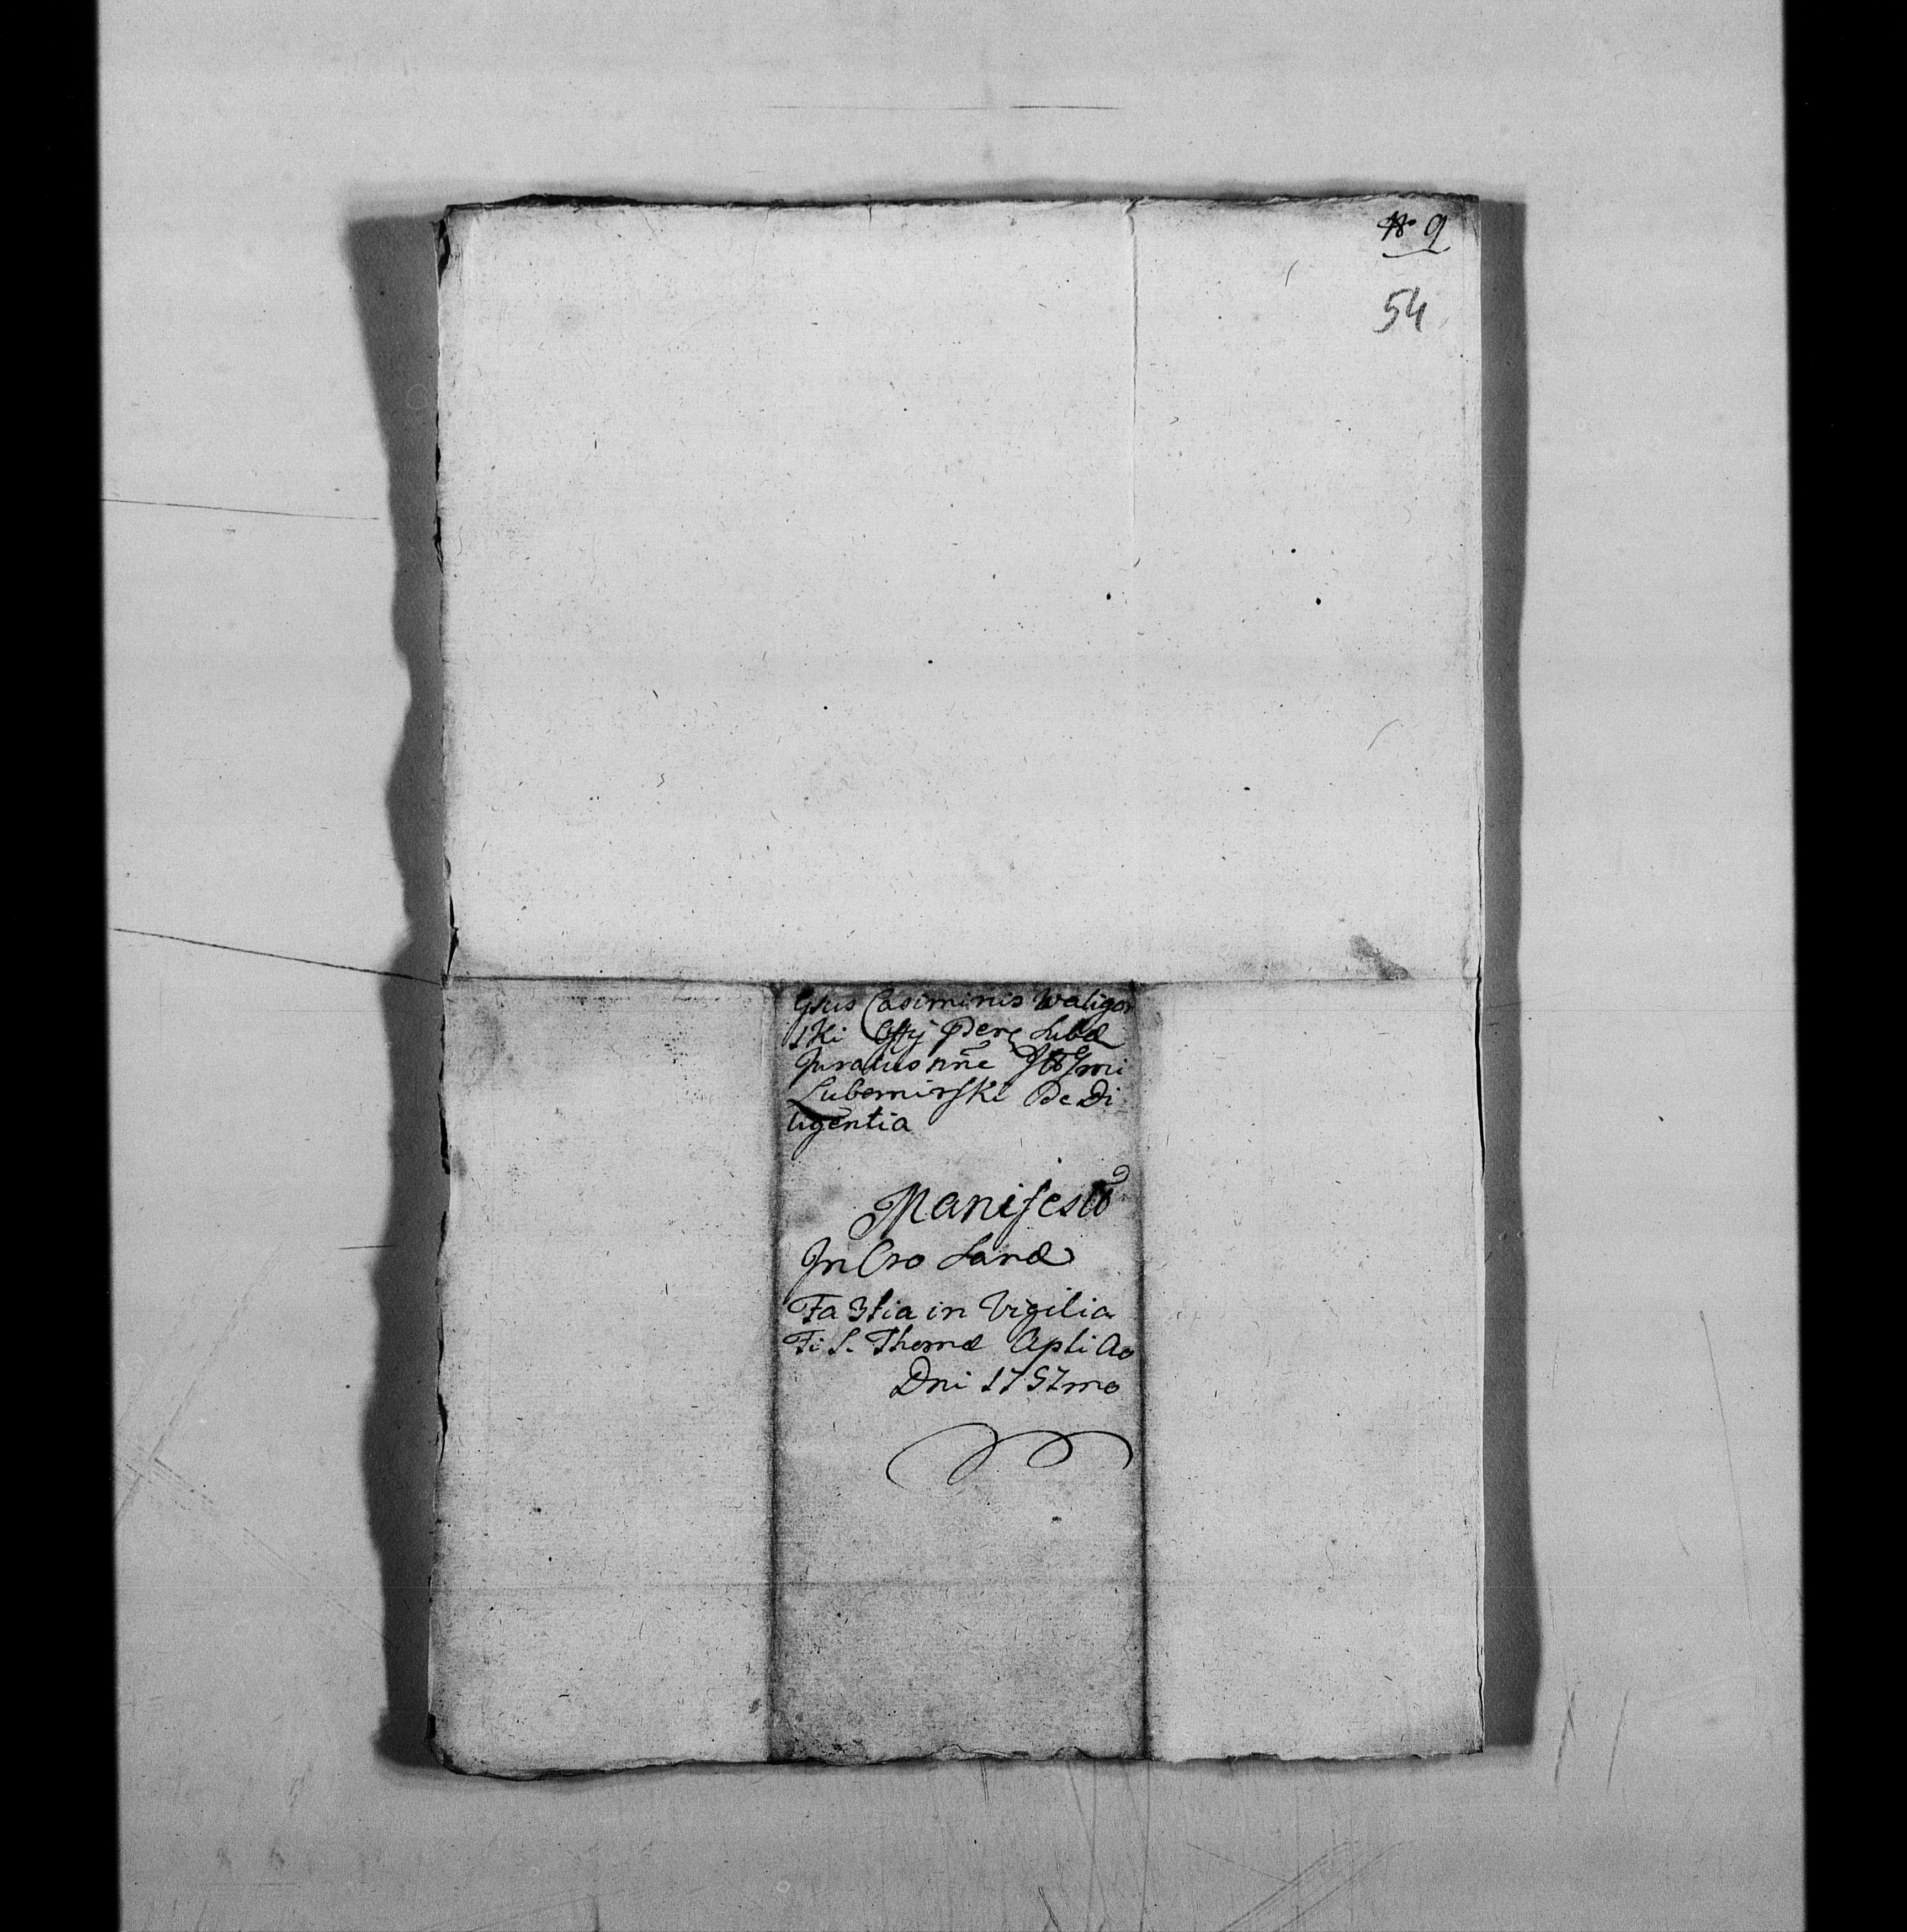 No 9
54
Gsus Casimirus Waligor
ski Offij Lubæ
Juratus nne
Lubomirski De Di
ligentia
Manifesto
In Cro Land
Fa 3tia in Vigilia
Fi S. Thomæ Apli Ao
Dni 1757mo